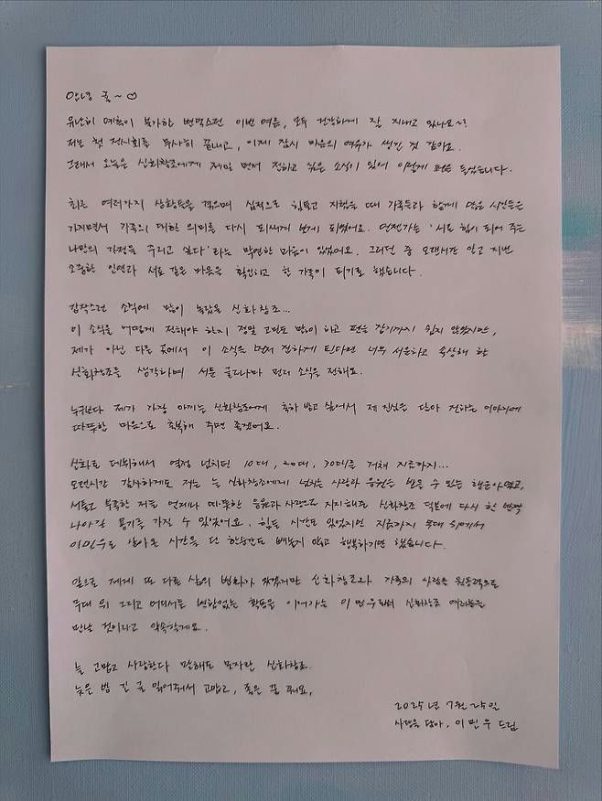 안녕 귤~♡
유난히 예측이 불가한 변덕스런 이번 여름, 모두 건강하게 잘 지내고 있나요~?
저는 첫 전시회를 무사히 끝내고, 이제 잠시 마음의 여유가 생긴 것 같아요.
그래서 오늘은 신화창조에게 제일 먼저 전하고 싶은 소식이 있어 이렇게 펜을 들었습니다.
최근 여러가지 상황들을 겪으며 심적으로 힘들고 지쳤을 때 가족들과 함께 많은 시간들을
가지면서 가족의 대한 의미를 다시 되새기게 되었어요. 언젠가는 '서로 힘이 되어 주는
나만의 가정을 꾸리고 싶다'라는 막연한 마음이 있었어요. 그러던 중 오랜시간 알고 지낸
소중한 인연과 서로 같은 마음을 확인하고 한 가족이 되기로 했습니다.
갑작스런 소식에 많이 놀랐을 신화창조...
이 소식을 어떻게 전해야 하지 정말 고민도 많이 하고 펜을 잡기까지 쉽지 않았지만,
제가 아닌 다른 곳에서 이 소식을 먼저 전하게 된다면 너무 서운하고 속상해 할
신화창조를 생각하며 서툰 글로나마 먼저 소식을 전해요.
누구보다 제가 가장 아끼는 신화창조에게 축하 받고 싶어서 제 진심을 담아 전하는 이야기에
따뜻한 마음으로 축복해 주면 좋겠어요.
신화로 데뷔해서 열정 넘치던 10대, 20대, 30대를 거쳐 지금까지...
오랜시간 감사하게도 저는 늘 신화창조에게 넘치는 사랑과 응원을 받을 수 있는 행운아였고,
서툴고 부족한 저를 언제나 따뜻한 응원과 사랑으로 지지해준 신화창조 덕분에 다시 한 번 더
나아갈 용기를 가질 수 있었어요. 힘든 시간도 있었지만 지금까지 무대 위에서
이민우로 살아온 시간을 단 한순간도 빼놓지 않고 행복하기만 했습니다.
앞으로 제게 또 다른 삶의 변화가 있겠지만 신화창조와 가족의 사랑을 원동력으로
무대 위 그리고 어디서든 변함없는 활동을 이어가는 이민우로써 신화창조 여러분을
만날 것이라고 약속할게요.
늘 고맙고 사랑한다 말해도 모자란 신화창조
늦은 밤 긴 글 읽어줘서 고맙고, 좋은 꿈 꿔요.
2025년 7월 25일
사랑을 담아, 이민우 드림